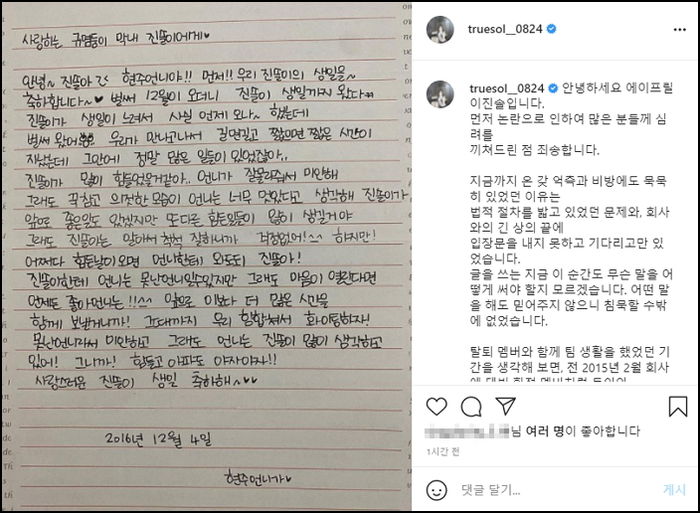 사랑하는 귀염둥이 막내 진쏠이에게♥
안녕~ 진쏠아 현주언니야!! 먼저!! 우리 진쏠이의 생일을~
축하합니다~♥ 벌써 12월이 오더니 진쏠이 생일까지 왔다
진쏠이가 생일이 느려서 사실 언제 오나~ 했는데
벌써 왔어 우리가 만나고나서 길면길고 짧으면 짧은 시간이
지났는데 그안에 정말 많은 일들이 있었잖아..
진쏠이가 많이 힘들었을거같아.. 언니가 잘몰라줘서 미안해
그래도 꾹참고 의젓한 모습이 언니는 너무 멋있다고 생각해 진쏠이가
앞으로 좋은일도 있겠지만 또다른 힘든일들이 많이 생길거야
그래도 진쏠이는 알아서 척척 잘하니까 걱정없어!^^ 하지만!
어쩌다 힘든날이오면 언니한테 와도되 진쏠아!
진쏠이한테 언니는 못난언니일수있지만 그래도 마음이 열린다면
언제든 좋아언니는!!^^ 앞으로 이보다 더 많은 시간을
함께 보낼거니까! 그때까지 우리 힘합쳐서 화이팅하자!
못난언니라서 미안하고 그래도 언니는 진쏠이 많이 생각하고
있어! 그니까! 힘들고 아파도 아자아자!!
사랑스러운 진쏠이 생일 축하해~♥♥
2016년 12월 4일
현주언니가♥
truesol__0824
truesol__0824 안녕하세요 에이프릴
이진솔입니다.
먼저 논란으로 인하여 많은 분들께 심
려를
끼쳐드린 점 죄송합니다.
지금까지 온 갖 억측과 비방에도 묵묵
히 있었던 이유는
법적 절차를 밟고 있었던 문제와, 회사
와의 긴 상의 끝에
입장문을 내지 못하고 기다리고만 있
었습니다.
글을 쓰는 지금 이 순간도 무슨 말을 어
떻게 써야 할지 모르겠습니다. 어떤 말
을 해도 믿어주지 않으니 침묵할 수밖
에 없었습니다.
탈퇴 멤버와 함께 팀 생활을 했었던 기
간을 생각해 보면, 전 2015년 2월 회사
님 여러 명이 좋아합니다
1시간 전
댓글 달기...
게시